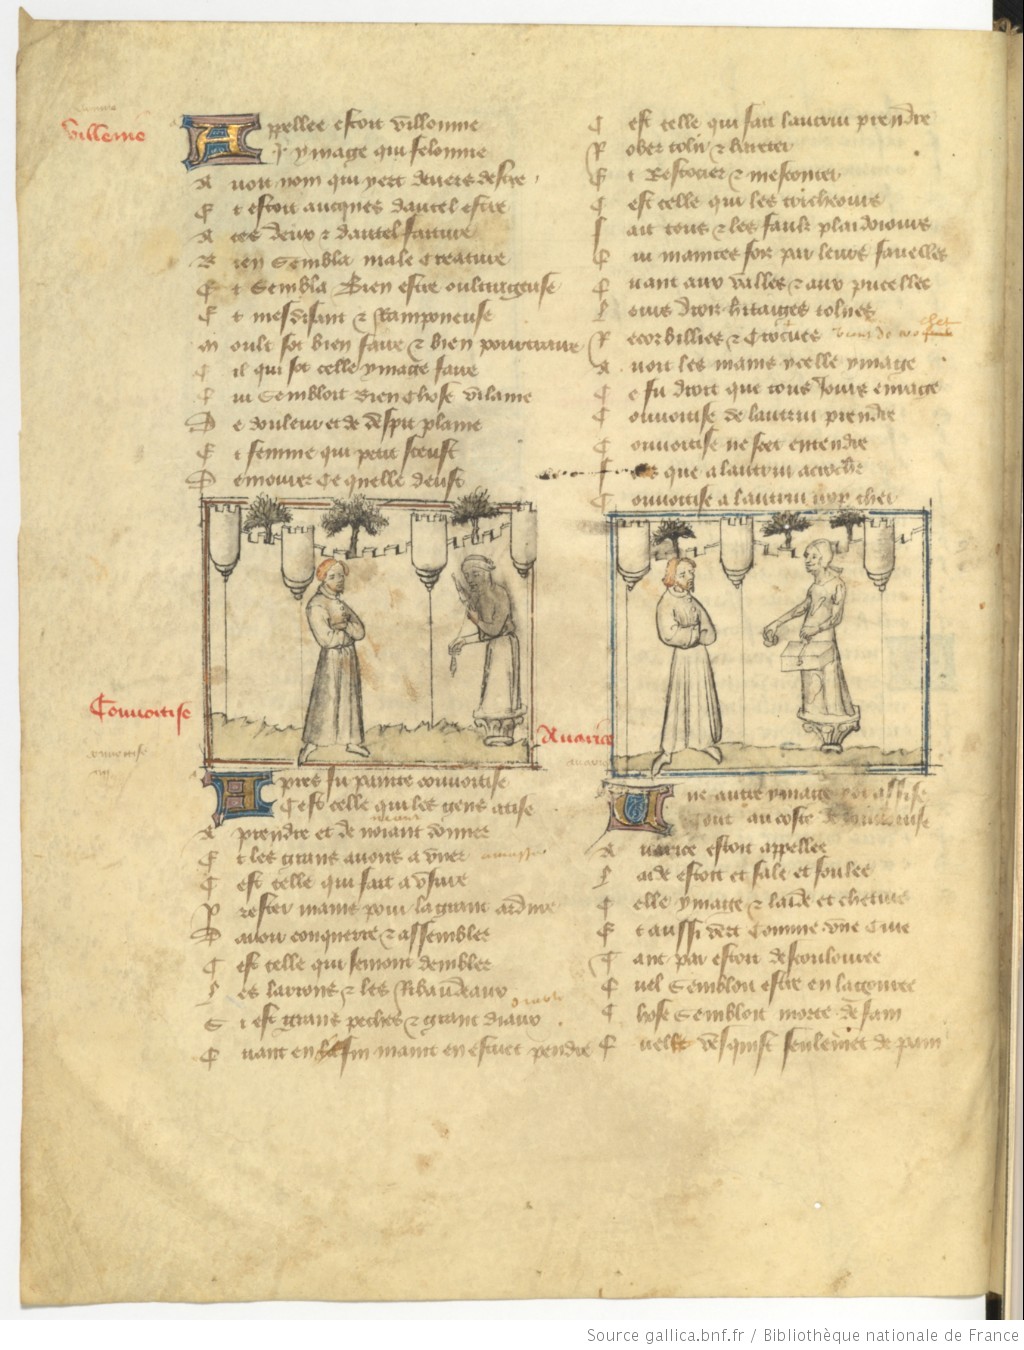 Villenie
Appellee estoit villonnie
L ymage qui felonnie
A uoit nom qui yert deuers destre
E t estoit aucques dautel estre
A ces deux & dautel faiture
B ien sembla male creature
E t sembla bien estre oultrageuse
E t mesdisant & ramponeuse
M oult sot bien faire & bien pourtraire
C il qui sot celle ymage faire
L ui sembloit bien chose vilaine
D e douleur et de despit plaine
E t femme qui petit sceust
D emourer ce quelle deust
Conuoitise
Apres fu painte conuoitise
C est celle qui les gens atise
A prendre et de noiant donner
E t les grans auoirs a
C est celle qui fait a vsure
P rester maint pour la grant ardure
D auoir conquerre & assembler
C est celle qui semont dembler
L es larrons & les Ribaudeaux
S i est grans pechies & grant diaux
Q uant en la fin maint en estuet pendre
C est celle qui fait lautrui prendre
R ober tolir & bareter
E t & mesconter
C est celle qui les tricheours
F ait tous & les faulx plaidoiours
Q ui maintes fois par leurs fauelles
Q uant aux valles & aux pucelles
L eurs droit hritaiges tolues
R ecorbillies & crocues
A uoit les mains ycelle ymage
C e fu droit que tous jours enrage
C onuoitise de lautrui prendre
C onuoitise ne scet entendre
F que a lautrui acrochier
C onuoitise a lautrui trop chier
Auarice
Une autre ymage assise
Cout au coste de
A uarice estoit appellee
L aide estoit et sale et foulee
C elle ymage & laide et chetiue
E t aussi vert comme vne ciue
T ant par estoit descoulouree
Q uel sembloit estre en langouree
C hose sembloit morte de fain
Q uelle vesquist seulemet de pain
Source gallica.bnf.fr / Bibliothèque nationale de France